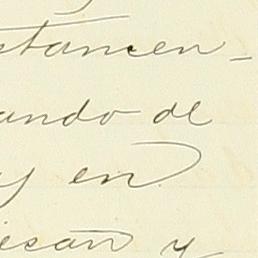 stamen-
ando de
y en
iesan y